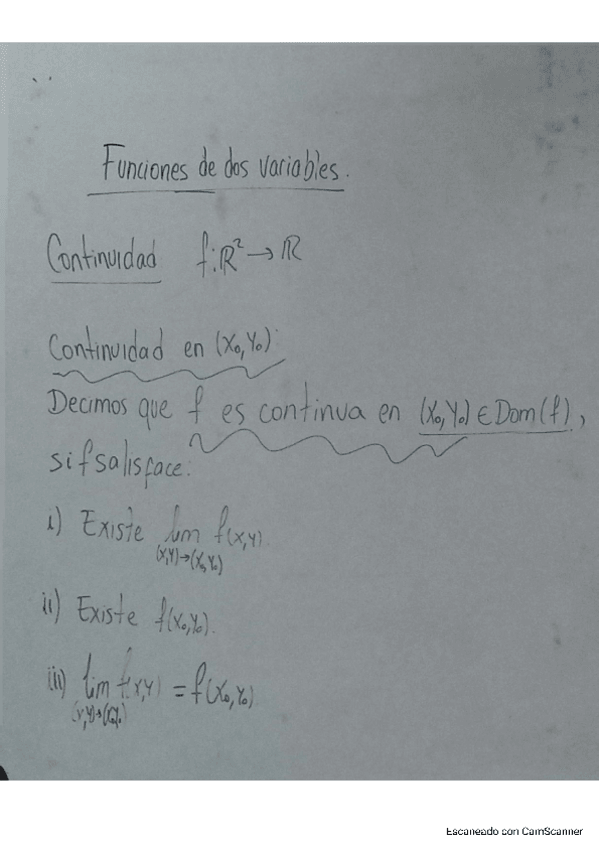 Funciones de dos variables.
Continuidad f:ℝ²→ℝ
Continuidad en (x₀,y₀):
Decimos que f es continua en (x₀,y₀)∈Dom(f),
si f satisface:
i) Existe lim f(x,y)
(x,y)→(x₀,y₀)
ii) Existe f(x₀,y₀).
iii) lim f(x,y) = f(x₀,y₀)
(x,y)→(x₀,y₀)
Escaneado con CamScanner